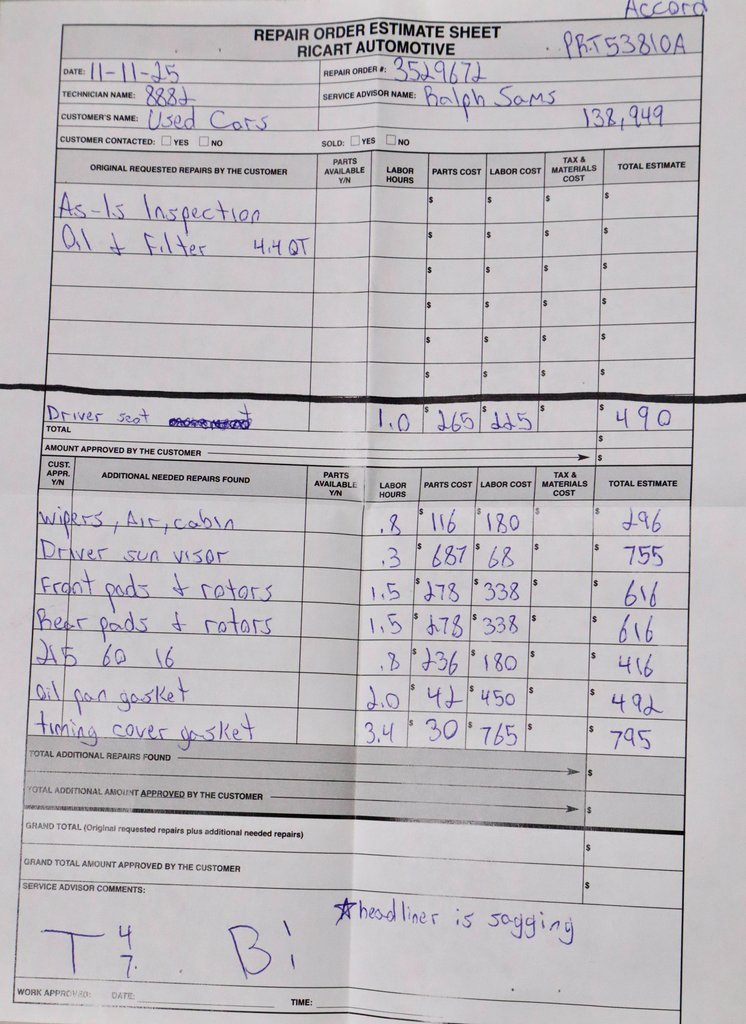 Accord
REPAIR ORDER ESTIMATE SHEET
RICART AUTOMOTIVE
PRT53810A
DATE: 11-11-25 REPAIR ORDER #: 3529672
TECHNICIAN NAME: 8882 SERVICE ADVISOR NAME: Ralph Sams
CUSTOMER'S NAME: Used Cars 138,949
CUSTOMER CONTACTED: YES NO SOLD: YES NO
ORIGINAL REQUESTED REPAIRS BY THE CUSTOMER PARTS AVAILABLE Y/N LABOR HOURS PARTS COST LABOR COST TAX & MATERIALS COST TOTAL ESTIMATE
As-Is Inspection $ $ $ $
Oil & Filter 4.4 QT $ $ $ $
$ $ $ $
$ $ $ $
$ $ $ $
$ $ $ $
Driver seat 1.0 $ 265 $ 225 $ $ 490
TOTAL $
AMOUNT APPROVED BY THE CUSTOMER $
CUST. APPR. Y/N ADDITIONAL NEEDED REPAIRS FOUND PARTS AVAILABLE Y/N LABOR HOURS PARTS COST LABOR COST TAX & MATERIALS COST TOTAL ESTIMATE
Wipers, Air, cabin .8 $ 116 $ 180 $ $ 296
Driver sun visor .3 $ 687 $ 68 $ $ 755
Front pads & rotors 1.5 $ 278 $ 338 $ $ 616
Rear pads & rotors 1.5 $ 278 $ 338 $ $ 616
215 60 16 .8 $ 236 $ 180 $ $ 416
Oil pan gasket 2.0 $ 42 $ 450 $ $ 492
timing cover gasket 3.4 $ 30 $ 765 $ $ 795
TOTAL ADDITIONAL REPAIRS FOUND $
TOTAL ADDITIONAL AMOUNT APPROVED BY THE CUSTOMER $
GRAND TOTAL (Original requested repairs plus additional needed repairs) $
GRAND TOTAL AMOUNT APPROVED BY THE CUSTOMER $
SERVICE ADVISOR COMMENTS:
☆headliner is sagging
T 4 7. B:
WORK APPROVED: DATE: TIME: